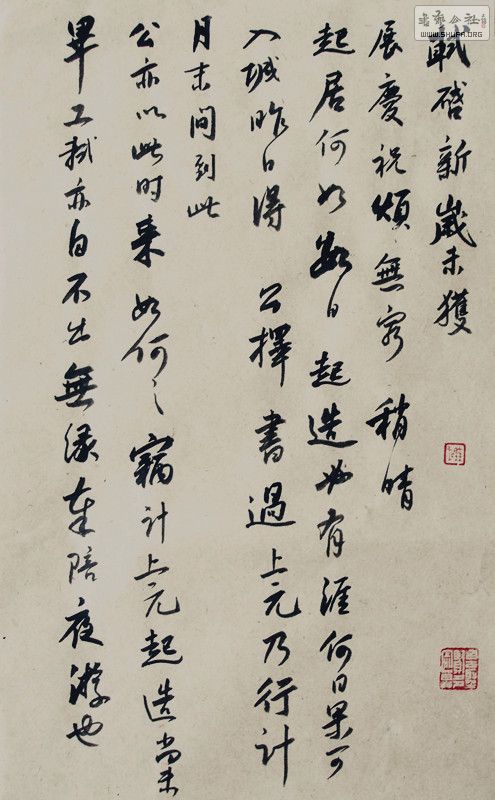 軾啓新歲未獲
展慶祝頌無窮稍晴
起居何如數日起造必有涯何日果可
入城昨日得 公擇書過上元乃行計
月末間到此
公亦以此時來如何々竊計上元起造尚未
畢工軾亦自不出無緣奉陪夜游也
WWW.SHUFA.ORG